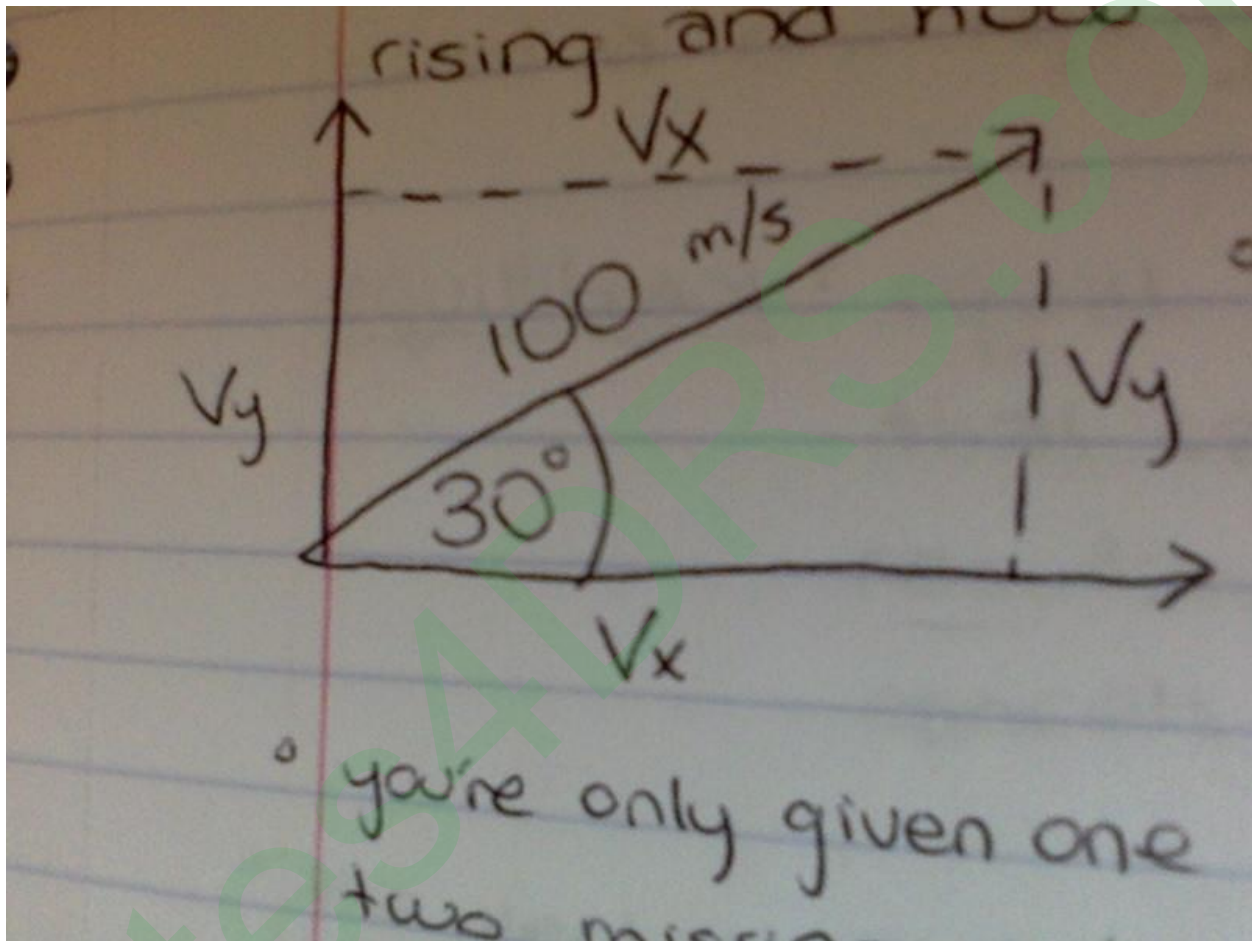 rising and
Vx
m/s
100
Vy
Vy
30°
Vx
° you're only given one
two